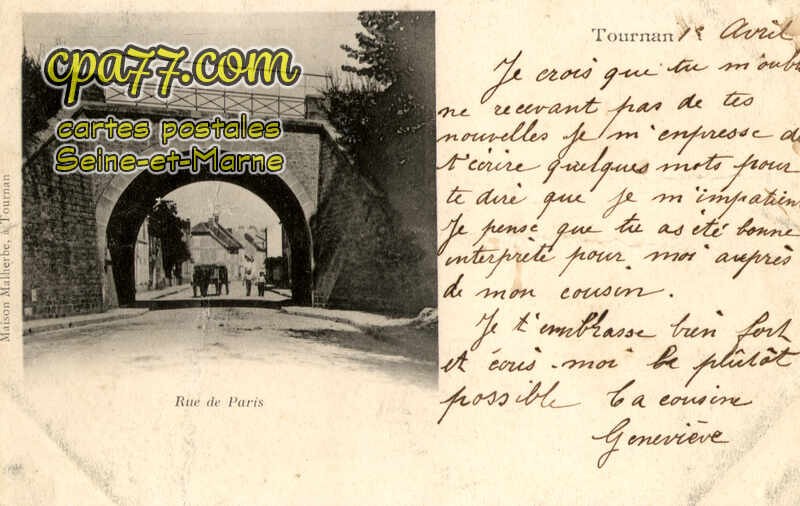 cpa77.com
cartes postales
Seine-et-Marne
Maison Malherbe, à Tournan
Rue de Paris
Tournan 1e Avril
Je crois que tu m'oubl
ne recevant pas de tes
nouvelles je m'enpresse de
t'écrire quelques mots pour
te dire que je m'impatien
Je pense que tu as été bonne
interprète pour moi auprès
de mon cousin.
Je t'embrasse bien fort
et écris-moi le plûtôt
possible Ta cousine
Geneviève